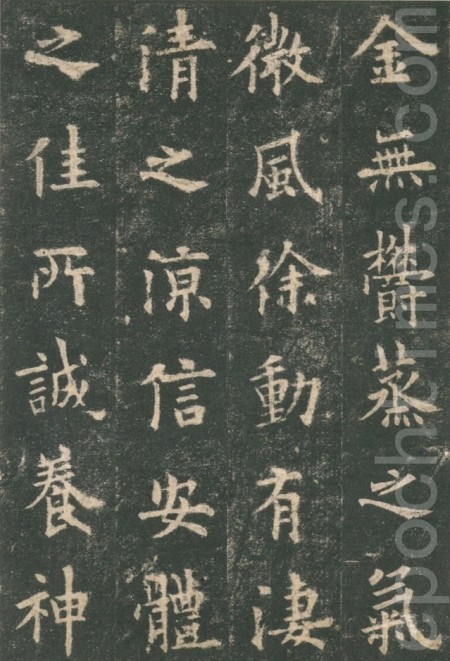 金無欝蒸之氣
微風徐動有淒
清之涼信安體
之佳所誠養神
epochtimes.com